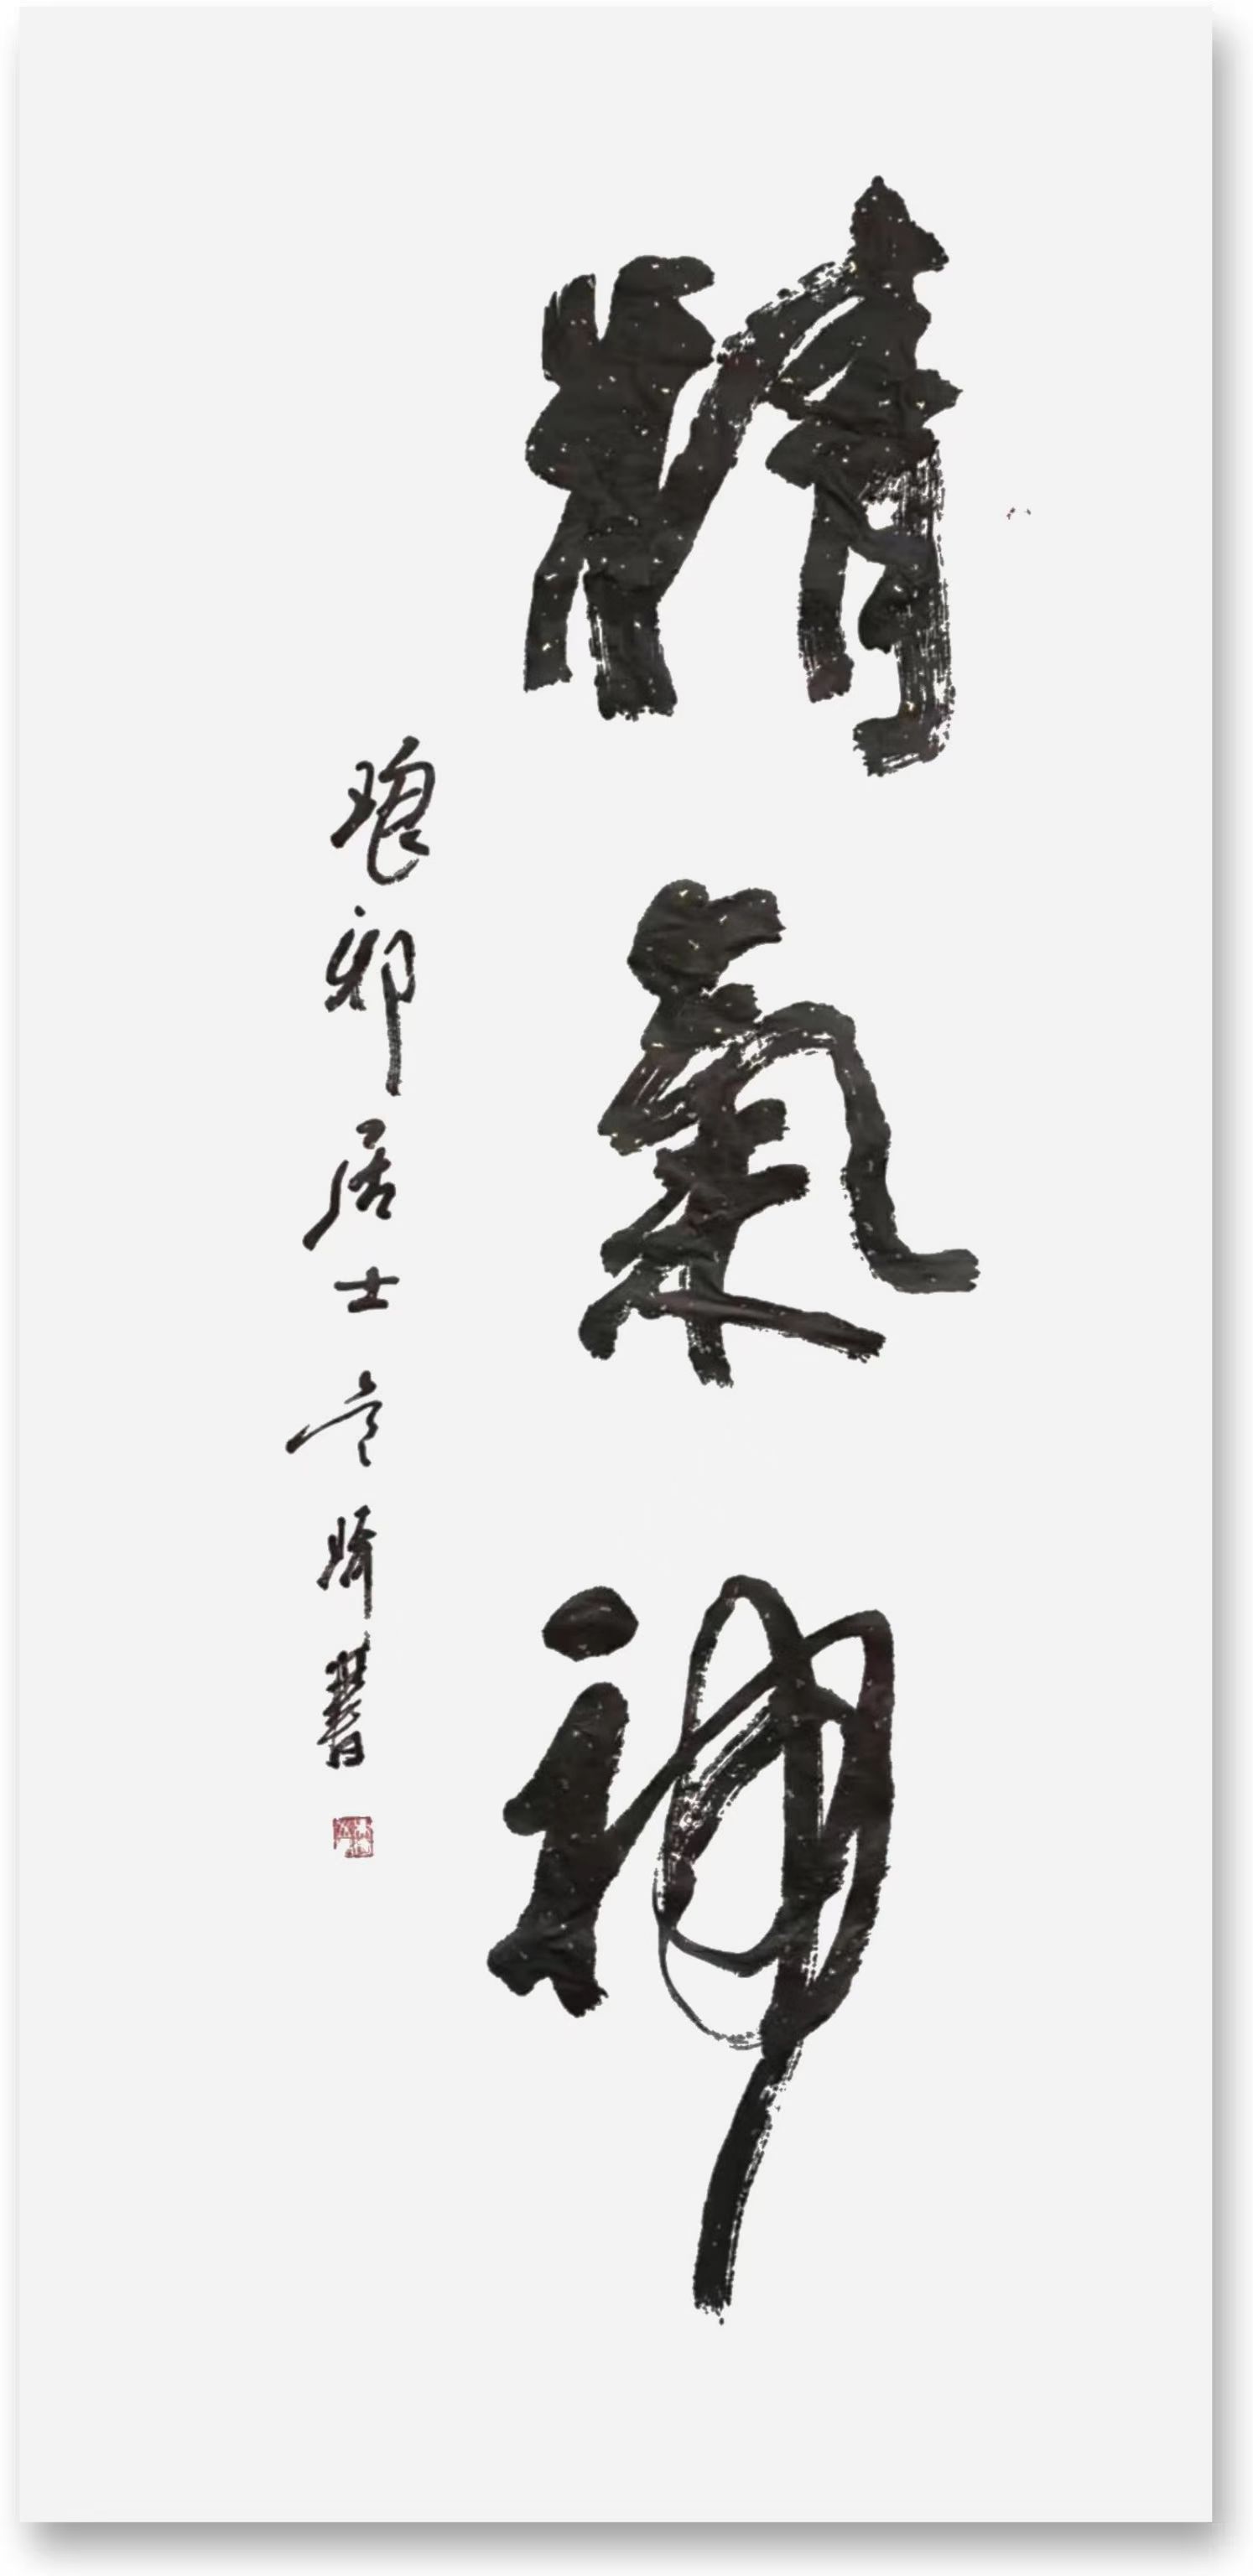 精氣神
琅邪居士
書